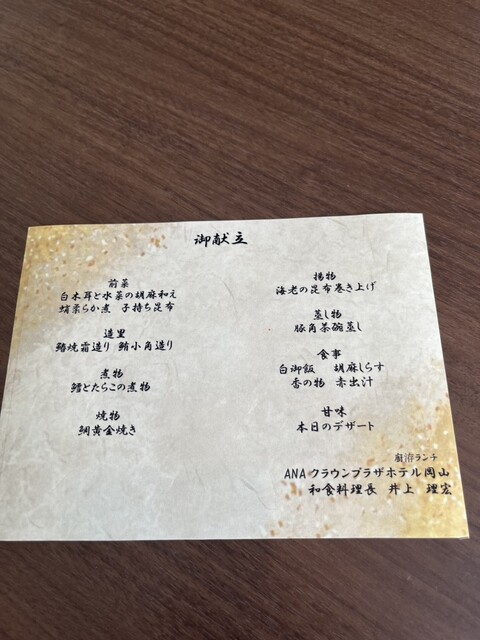 御献立
前菜
白木耳と水菜の胡麻和え
蛸柔らか煮 子持ち昆布
造里
鰆焼霜造り 鮪小角造り
煮物
鱈とたらこの煮物
焼物
鯛黄金焼き
揚物
海老の昆布巻き上げ
蒸し物
豚角茶碗蒸し
食事
白御飯 胡麻しらす
香の物 赤出汁
甘味
本日のデザート
ランチ
ANAクラウンプラザホテル岡山
和食料理長 井上 理宏